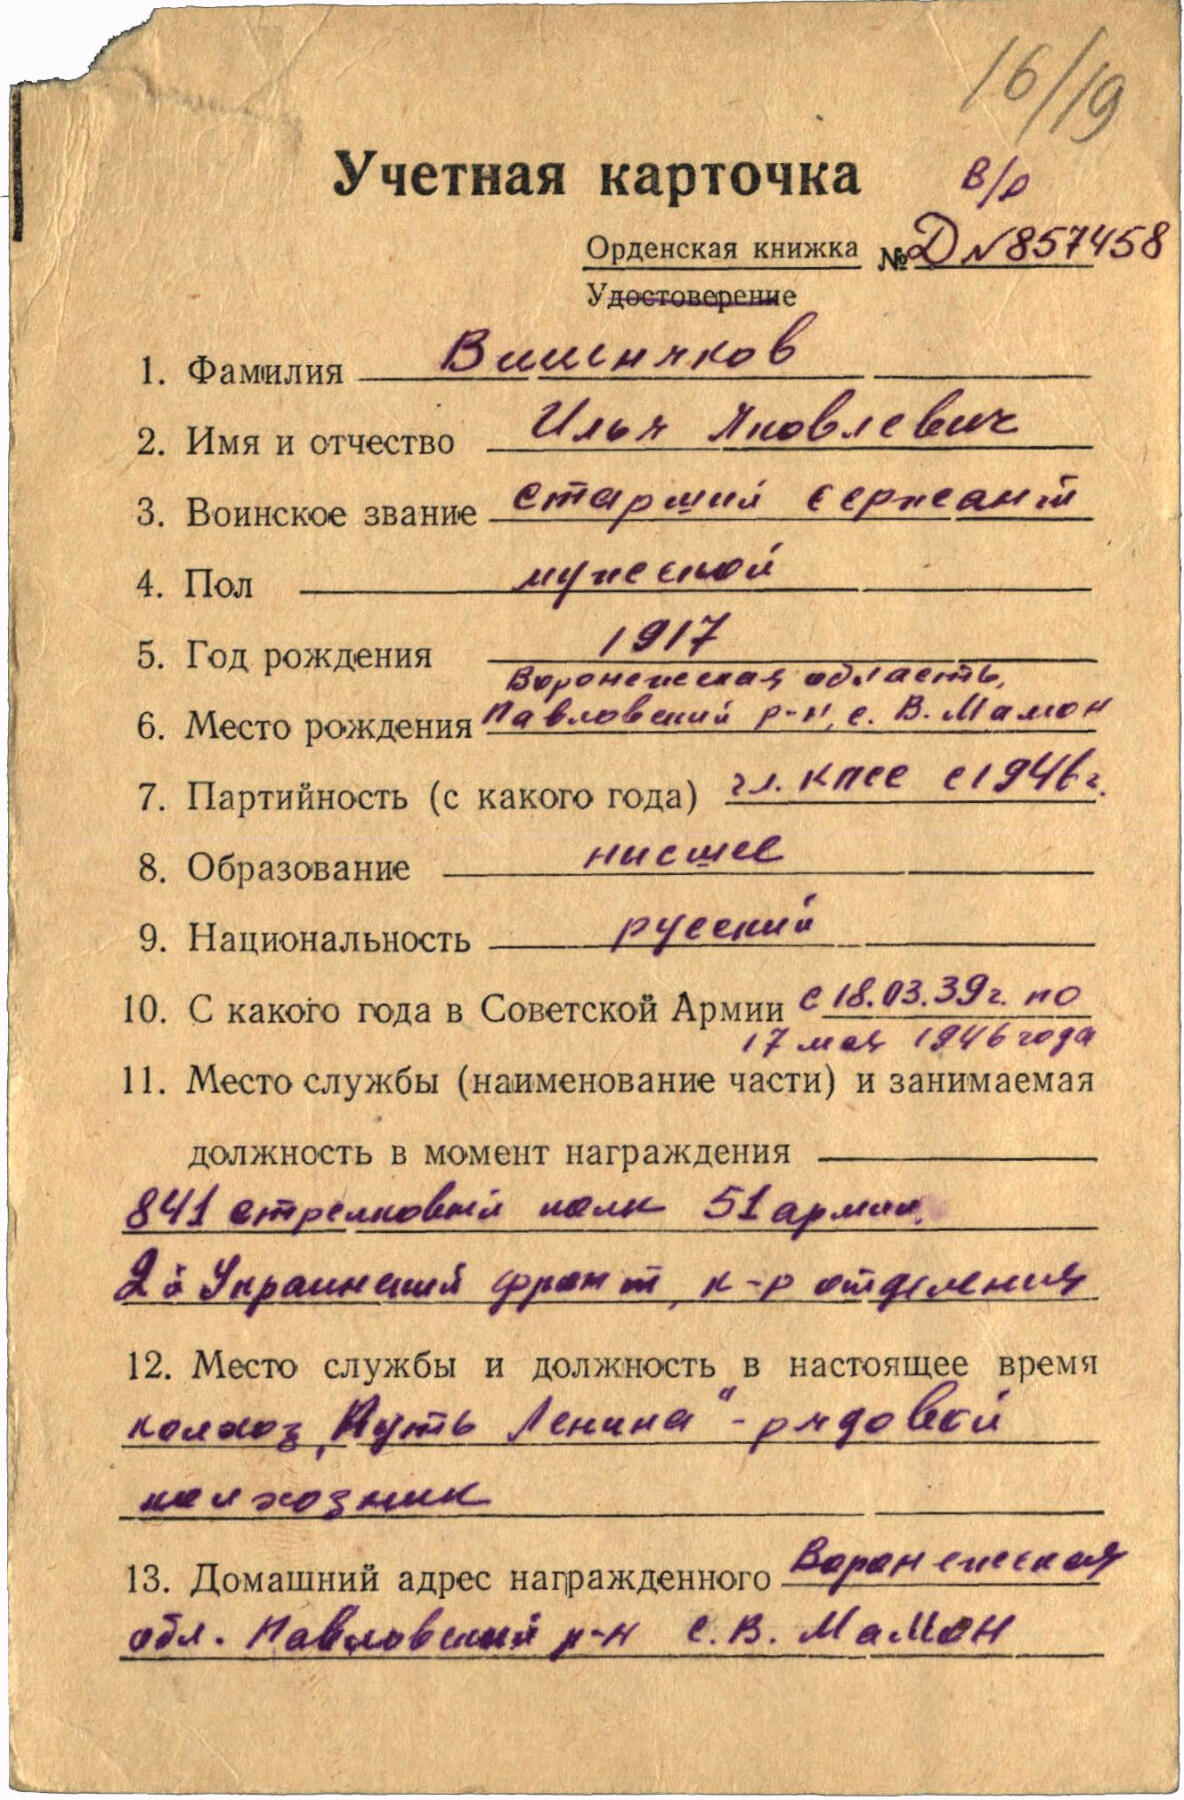 16/19
Учетная карточка
в/р
Орденская книжка № Д №857458
Удостоверение
1. Фамилия Вишняков
2. Имя и отчество Илья Яковлевич
3. Воинское звание старший сержант
4. Пол мужской
5. Год рождения 1917
Воронежская область,
6. Место рождения Павловский р-н, с. В. Мамон
7. Партийность (с какого года) чл. КПСС с 1946 г.
8. Образование нисшее
9. Национальность русский
10. С какого года в Советской Армии с 18.03.39 г. по
17 мая 1946 года
11. Место службы (наименование части) и занимаемая
должность в момент награждения
841 стрелковый полк 51 армии,
2й Украинский фронт, к-р отделения
12. Место службы и должность в настоящее время
колхоз „Путь Ленина" - рядовой
колхозник
13. Домашний адрес награжденного Воронежская
обл. Павловский р-н с. В. Мамон